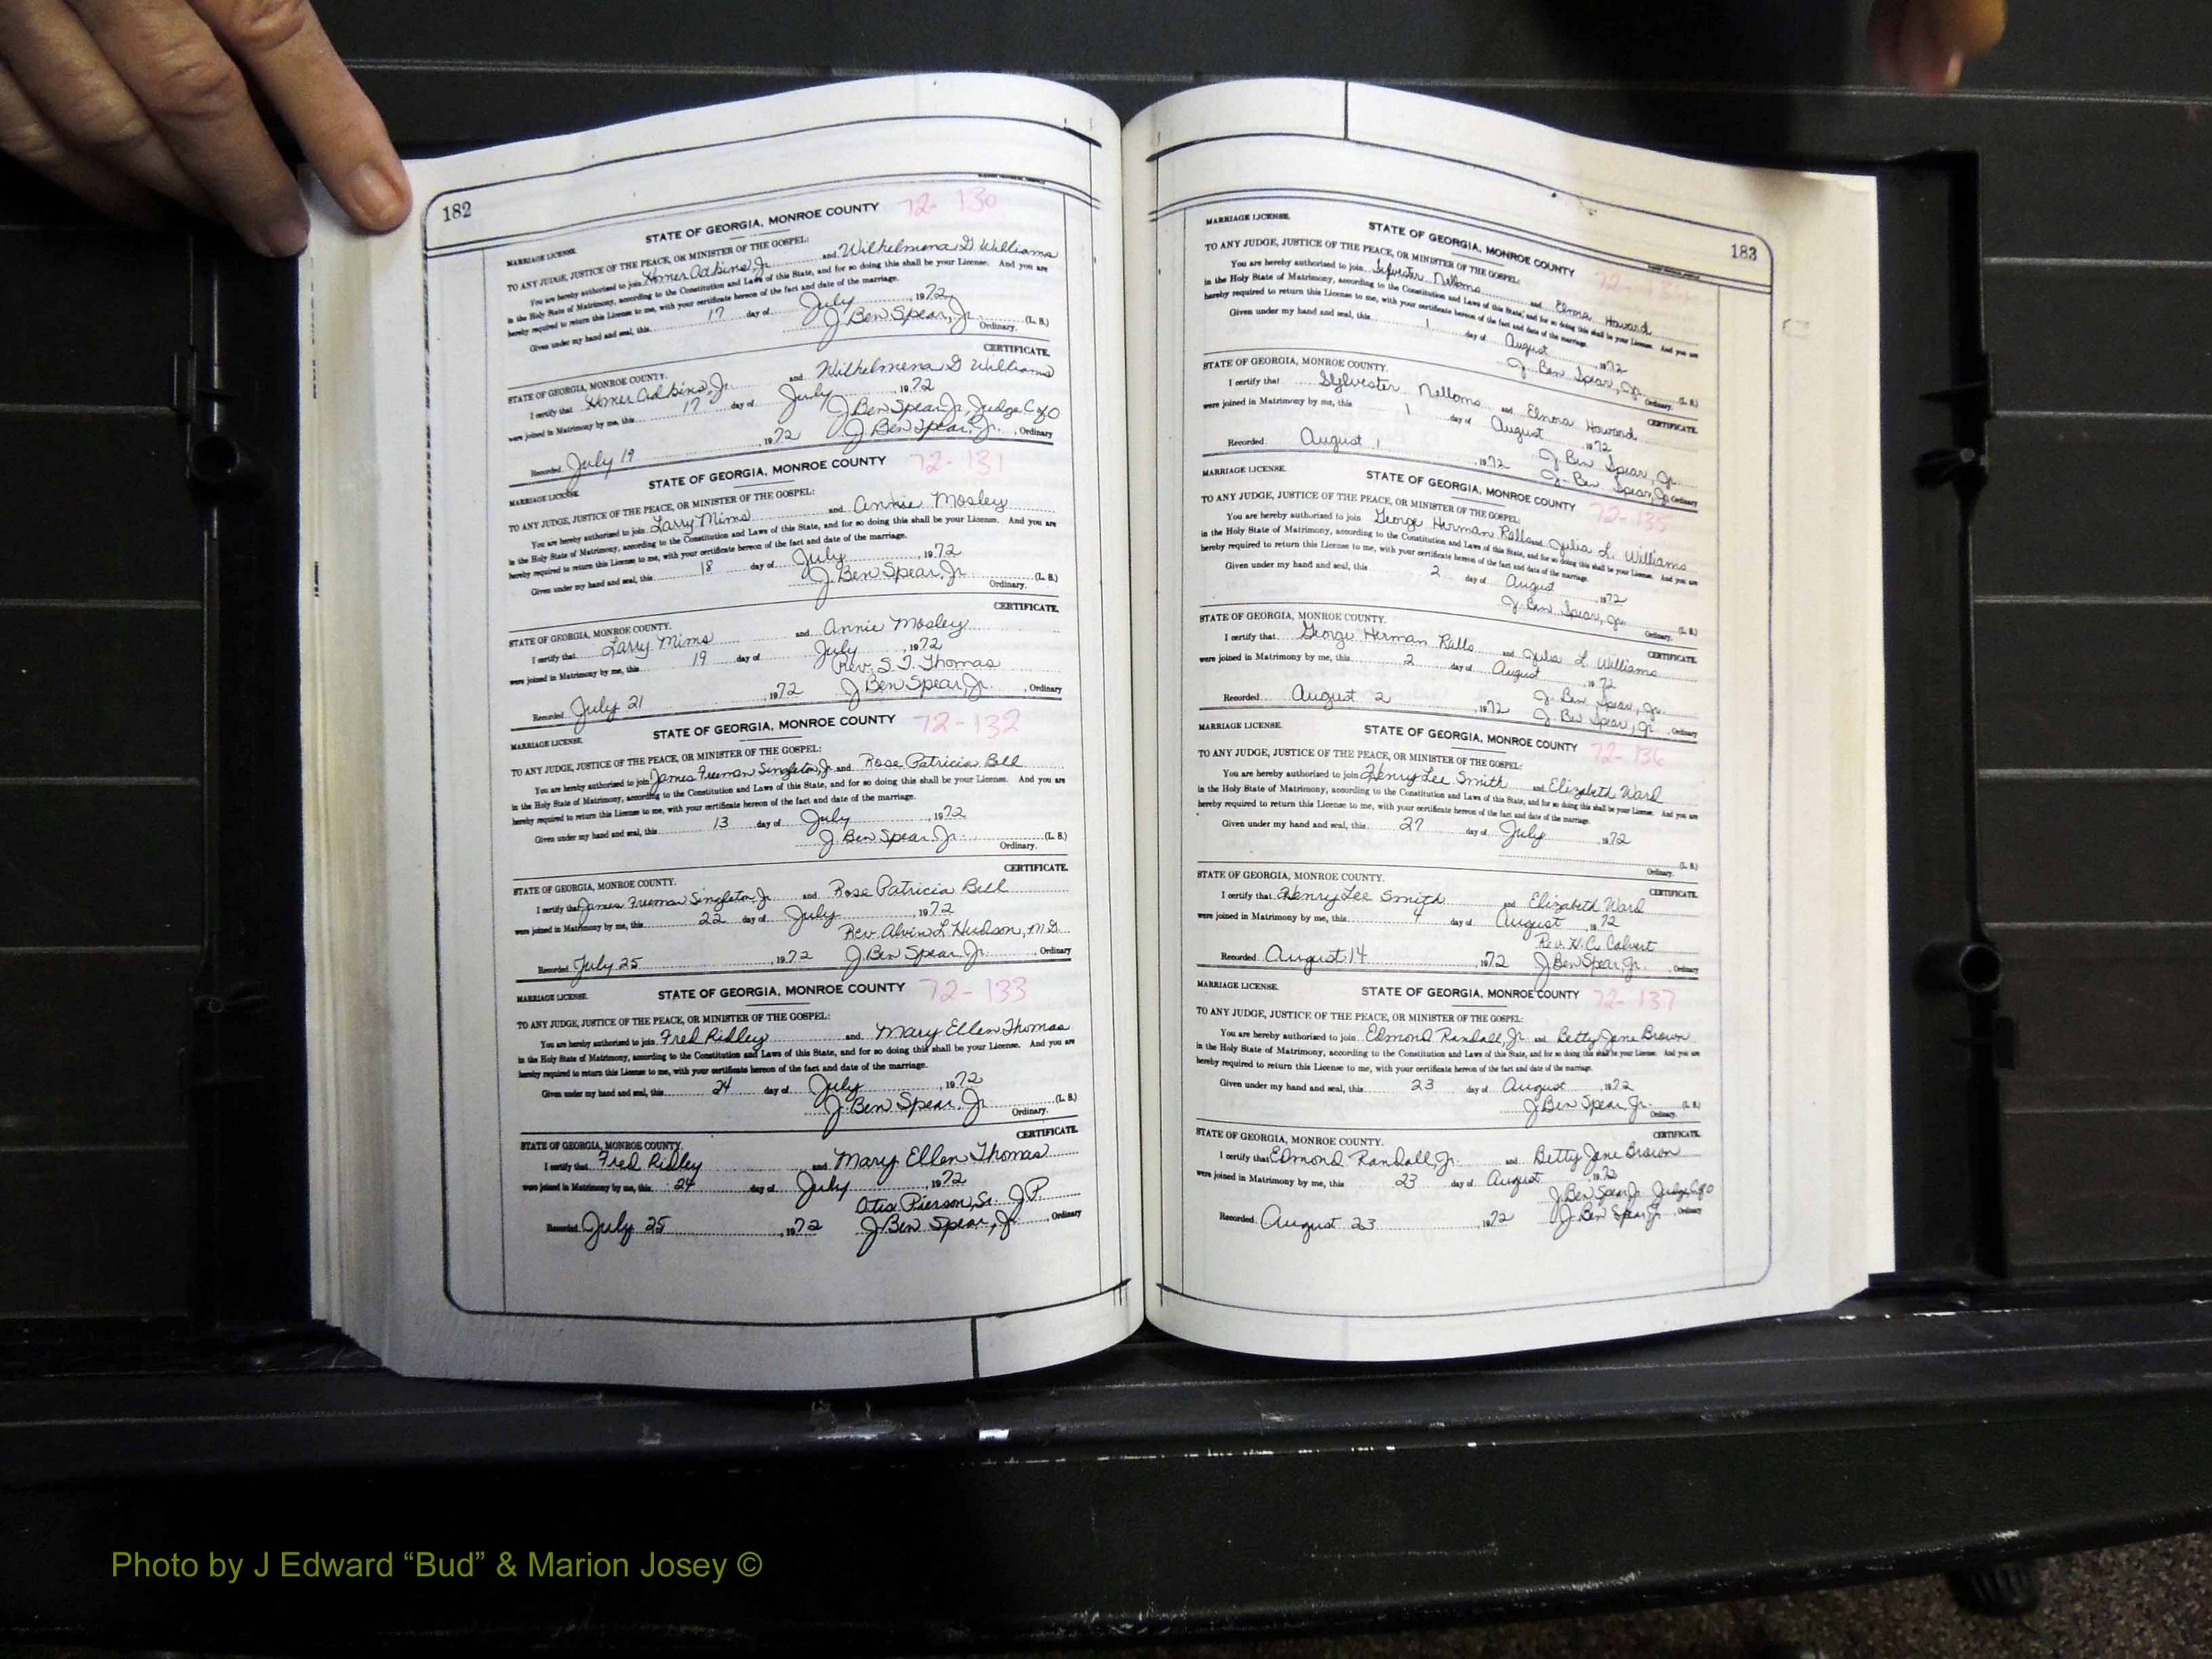 182
MARRIAGE LICENSE.
STATE OF GEORGIA, MONROE COUNTY 72-130
TO ANY JUDGE, JUSTICE OF THE PEACE, OR MINISTER OF THE GOSPEL:
You are hereby authorized to join Homer Adkins, Jr. and Wilhelmena D Williams
in the Holy State of Matrimony, according to the Constitution and Laws of this State, and for so doing this shall be your License. And you are
hereby required to return this License to me, with your certificate hereon of the fact and date of the marriage.
Given under my hand and seal, this 17 day of July, 1972
J Ben Spear, Jr. (L. S.)
Ordinary.
CERTIFICATE.
STATE OF GEORGIA, MONROE COUNTY.
I certify that Homer Adkins, Jr. and Wilhelmena D Williams
were joined in Matrimony by me, this 17 day of July, 1972
J Ben Spear, Jr, Judge C of O
Recorded July 19, 1972 J Ben Spear, Jr., Ordinary
MARRIAGE LICENSE.
STATE OF GEORGIA, MONROE COUNTY 72-131
TO ANY JUDGE, JUSTICE OF THE PEACE, OR MINISTER OF THE GOSPEL:
You are hereby authorized to join Larry Mims and Annie Mosley
in the Holy State of Matrimony, according to the Constitution and Laws of this State, and for so doing this shall be your License. And you are
hereby required to return this License to me, with your certificate hereon of the fact and date of the marriage.
Given under my hand and seal, this 18 day of July, 1972
J Ben Spear, Jr. (L. S.)
Ordinary.
CERTIFICATE.
STATE OF GEORGIA, MONROE COUNTY.
I certify that Larry Mims and Annie Mosley
were joined in Matrimony by me, this 19 day of July, 1972
Rev. S. T. Thomas
Recorded July 21, 1972 J Ben Spear, Jr., Ordinary
MARRIAGE LICENSE.
STATE OF GEORGIA, MONROE COUNTY 72-132
TO ANY JUDGE, JUSTICE OF THE PEACE, OR MINISTER OF THE GOSPEL:
You are hereby authorized to join James Freeman Singleton, Jr and Rose Patricia Bell
in the Holy State of Matrimony, according to the Constitution and Laws of this State, and for so doing this shall be your License. And you are
hereby required to return this License to me, with your certificate hereon of the fact and date of the marriage.
Given under my hand and seal, this 13 day of July, 1972
J. Ben Spear, Jr. (L. S.)
Ordinary.
CERTIFICATE.
STATE OF GEORGIA, MONROE COUNTY.
I certify that James Freeman Singleton, Jr and Rose Patricia Bell
were joined in Matrimony by me, this 22 day of July, 1972
Rev. Alvin L. Hudson, M.G.
Recorded July 25, 1972 J. Ben Spear, Jr., Ordinary
MARRIAGE LICENSE.
STATE OF GEORGIA, MONROE COUNTY 72-133
TO ANY JUDGE, JUSTICE OF THE PEACE, OR MINISTER OF THE GOSPEL:
You are hereby authorized to join Fred Ridley and Mary Ellen Thomas
in the Holy State of Matrimony, according to the Constitution and Laws of this State, and for so doing this shall be your License. And you are
hereby required to return this License to me, with your certificate hereon of the fact and date of the marriage.
Given under my hand and seal, this 24 day of July, 1972
J. Ben Spear, Jr (L. S.)
Ordinary.
CERTIFICATE.
STATE OF GEORGIA, MONROE COUNTY.
I certify that Fred Ridley and Mary Ellen Thomas
were joined in Matrimony by me, this 24 day of July, 1972
Otis Pierson, Sr. J.P.
Recorded July 25, 1972 J. Ben Spear, Jr., Ordinary
183
MARRIAGE LICENSE.
STATE OF GEORGIA, MONROE COUNTY
TO ANY JUDGE, JUSTICE OF THE PEACE, OR MINISTER OF THE GOSPEL:
You are hereby authorized to join Sylvester Nelloms and Elnora Howard
in the Holy State of Matrimony, according to the Constitution and Laws of this State, and for so doing this shall be your License. And you are
hereby required to return this License to me, with your certificate hereon of the fact and date of the marriage.
Given under my hand and seal, this 1 day of August, 1972
J. Ben Spear, Jr. (L. S.)
Ordinary.
CERTIFICATE.
STATE OF GEORGIA, MONROE COUNTY.
I certify that Sylvester Nelloms and Elnora Howard
were joined in Matrimony by me, this 1 day of August, 1972
J. Ben Spear, Jr.
Recorded August 1, 1972 J. Ben Spear, Jr. Ordinary
MARRIAGE LICENSE.
STATE OF GEORGIA, MONROE COUNTY 72-135
TO ANY JUDGE, JUSTICE OF THE PEACE, OR MINISTER OF THE GOSPEL:
You are hereby authorized to join George Herman Ralls and Julia L. Williams
in the Holy State of Matrimony, according to the Constitution and Laws of this State, and for so doing this shall be your License. And you are
hereby required to return this License to me, with your certificate hereon of the fact and date of the marriage.
Given under my hand and seal, this 2 day of August, 1972
J. Ben Spear, Jr. (L. S.)
Ordinary.
CERTIFICATE.
STATE OF GEORGIA, MONROE COUNTY.
I certify that George Herman Ralls and Julia L. Williams
were joined in Matrimony by me, this 2 day of August, 1972
J. Ben Spear, Jr.
Recorded August 2, 1972 J. Ben Spear, Jr, Ordinary
MARRIAGE LICENSE.
STATE OF GEORGIA, MONROE COUNTY 72-136
TO ANY JUDGE, JUSTICE OF THE PEACE, OR MINISTER OF THE GOSPEL:
You are hereby authorized to join Henry Lee Smith and Elizabeth Ward
in the Holy State of Matrimony, according to the Constitution and Laws of this State, and for so doing this shall be your License. And you are
hereby required to return this License to me, with your certificate hereon of the fact and date of the marriage.
Given under my hand and seal, this 27 day of July, 1972
(L. S.)
Ordinary.
CERTIFICATE.
STATE OF GEORGIA, MONROE COUNTY.
I certify that Henry Lee Smith and Elizabeth Ward
were joined in Matrimony by me, this 4 day of August, 1972
Rev. H. C. Calvert
Recorded August 14, 1972 J Ben Spear, Jr., Ordinary
MARRIAGE LICENSE.
STATE OF GEORGIA, MONROE COUNTY 72-137
TO ANY JUDGE, JUSTICE OF THE PEACE, OR MINISTER OF THE GOSPEL:
You are hereby authorized to join Edmond Randall, Jr. and Betty Jane Brown
in the Holy State of Matrimony, according to the Constitution and Laws of this State, and for so doing this shall be your License. And you are
hereby required to return this License to me, with your certificate hereon of the fact and date of the marriage.
Given under my hand and seal, this 23 day of August, 1972
J Ben Spear Jr. (L. S.)
Ordinary.
CERTIFICATE.
STATE OF GEORGIA, MONROE COUNTY.
I certify that Edmond Randall, Jr. and Betty Jane Brown
were joined in Matrimony by me, this 23 day of August, 1972
J. Ben Spear Jr Judge C of O
Recorded August 23, 1972 J Ben Spear Jr. Ordinary
Photo by J Edward “Bud” & Marion Josey ©